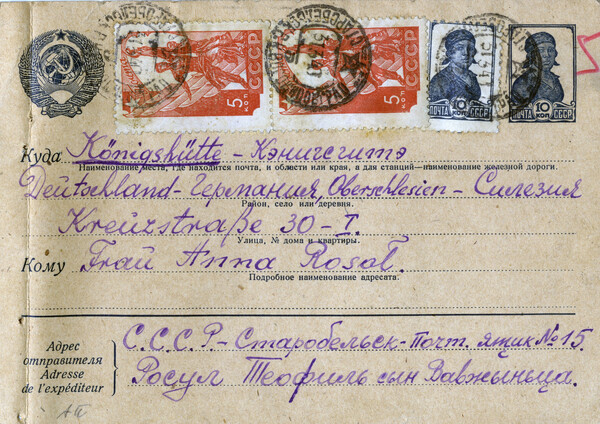 5 КОП. СССР 5 КОП. СССР ПОЧТА 10 КОП. СССР ПОЧТА 10 КОП. СССР
Куда Königshütte - Кэнигсгитэ
Наименование места, где находится почта, и области или края, а для станций—наименование железной дороги.
Deutschland-Германия, Oberschlesien - Силезия
Район, село или деревня.
Kreuzstraße 30 - I.
Улица, № дома и квартиры.
Кому Frau Anna Rosoł.
Подробное наименование адресата:
Адрес
отправителя
Adresse
de l'expéditeur
С.С.С.Р.- Старобельск - Почт. ящик № 15.
Росул Теофиль сын Вавжыньца.